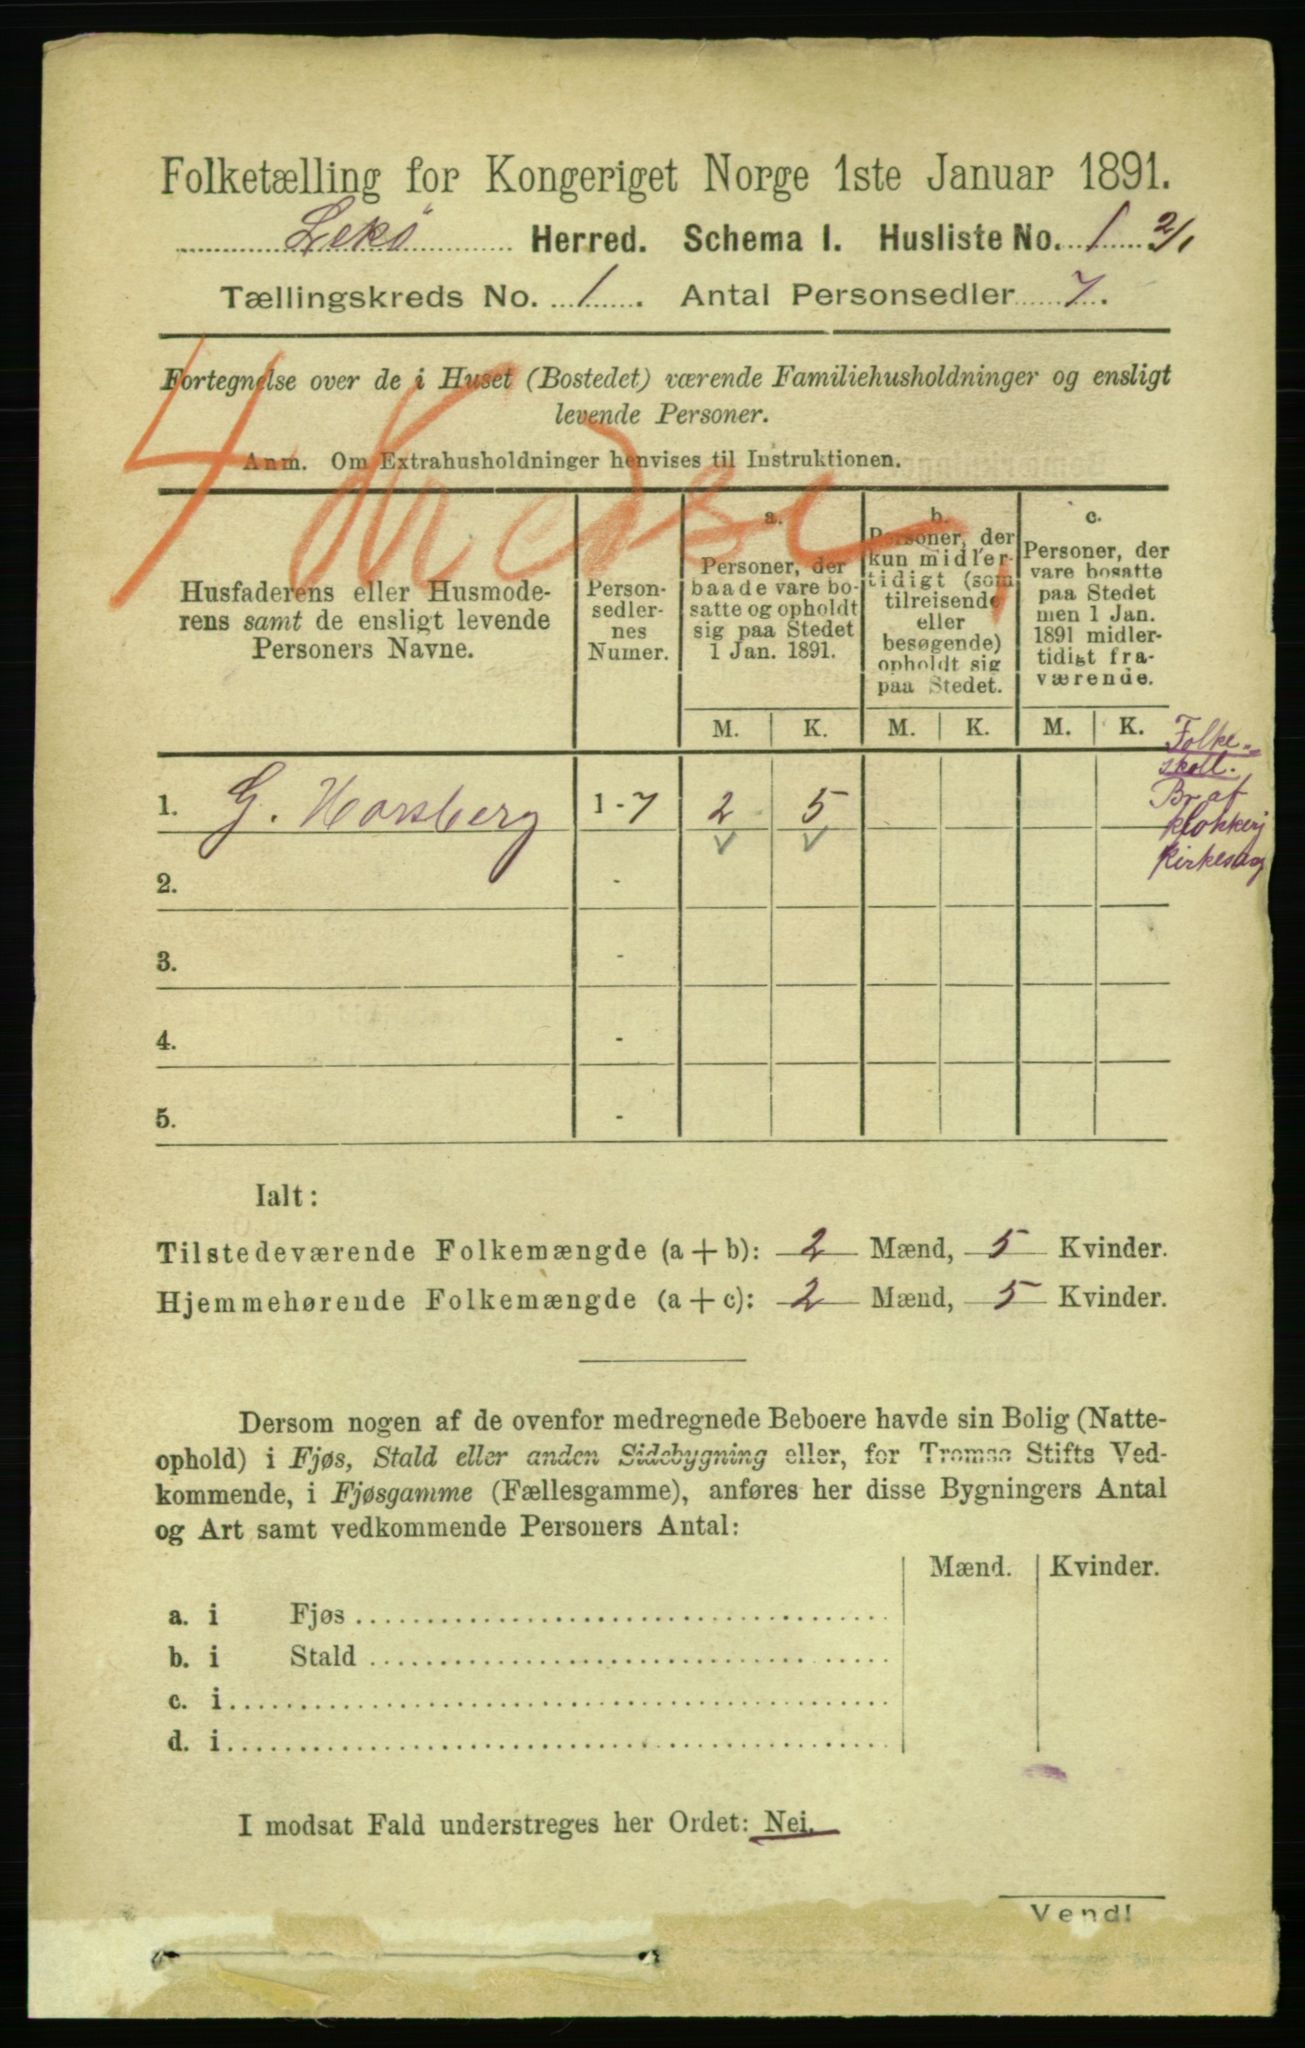 Folketælling for Kongeriget Norge 1ste Januar 1891.
Lekø Herred. Schema I. Husliste No. 1 2/1
Tællingskreds No. 1. Antal Personsedler 7.
Fortegnelse over de i Huset (Bostedet) værende Familiehusholdninger og ensligt
levende Personer.
Anm. Om Extrahusholdninger henvises til Instruktionen.
4
Husfaderens eller Husmode-
rens samt de ensligt levende
Personers Navne.
Person-
sedler-
nes
Numer.
a.
Personer, der
baade vare bo-
satte og opholdt
sig paa Stedet
1 Jan. 1891.
b.
Personer, der
kun midler-
tidigt (som
tilreisende
eller
besøgende)
opholdt sig
paa Stedet.
c.
Personer, der
vare bosatte
paa Stedet
men 1 Jan.
1891 midler-
tidigt fra-
værende.
M. K. M. K. M. K.
Folke-
skoll.
Br af
1. G. Horsberg 1-7 2 5
2. -
3. -
4. -
5. -
Ialt:
Tilstedeværende Folkemængde (a+b): 2 Mænd, 5 Kvinder.
Hjemmehørende Folkemængde (a+c): 2 Mænd, 5 Kvinder.
Dersom nogen af de ovenfor medregnede Beboere havde sin Bolig (Natte-
ophold) i Fjøs, Stald eller anden Sidebygning eller, for Tromsø Stifts Ved-
kommende, i Fjøsgamme (Fællesgamme), anføres her disse Bygningers Antal
og Art samt vedkommende Personers Antal:
Mænd. Kvinder.
a. i Fjøs
b. i Stald
c. i
d. i
I modsat Fald understreges her Ordet: Nei.
Vend!